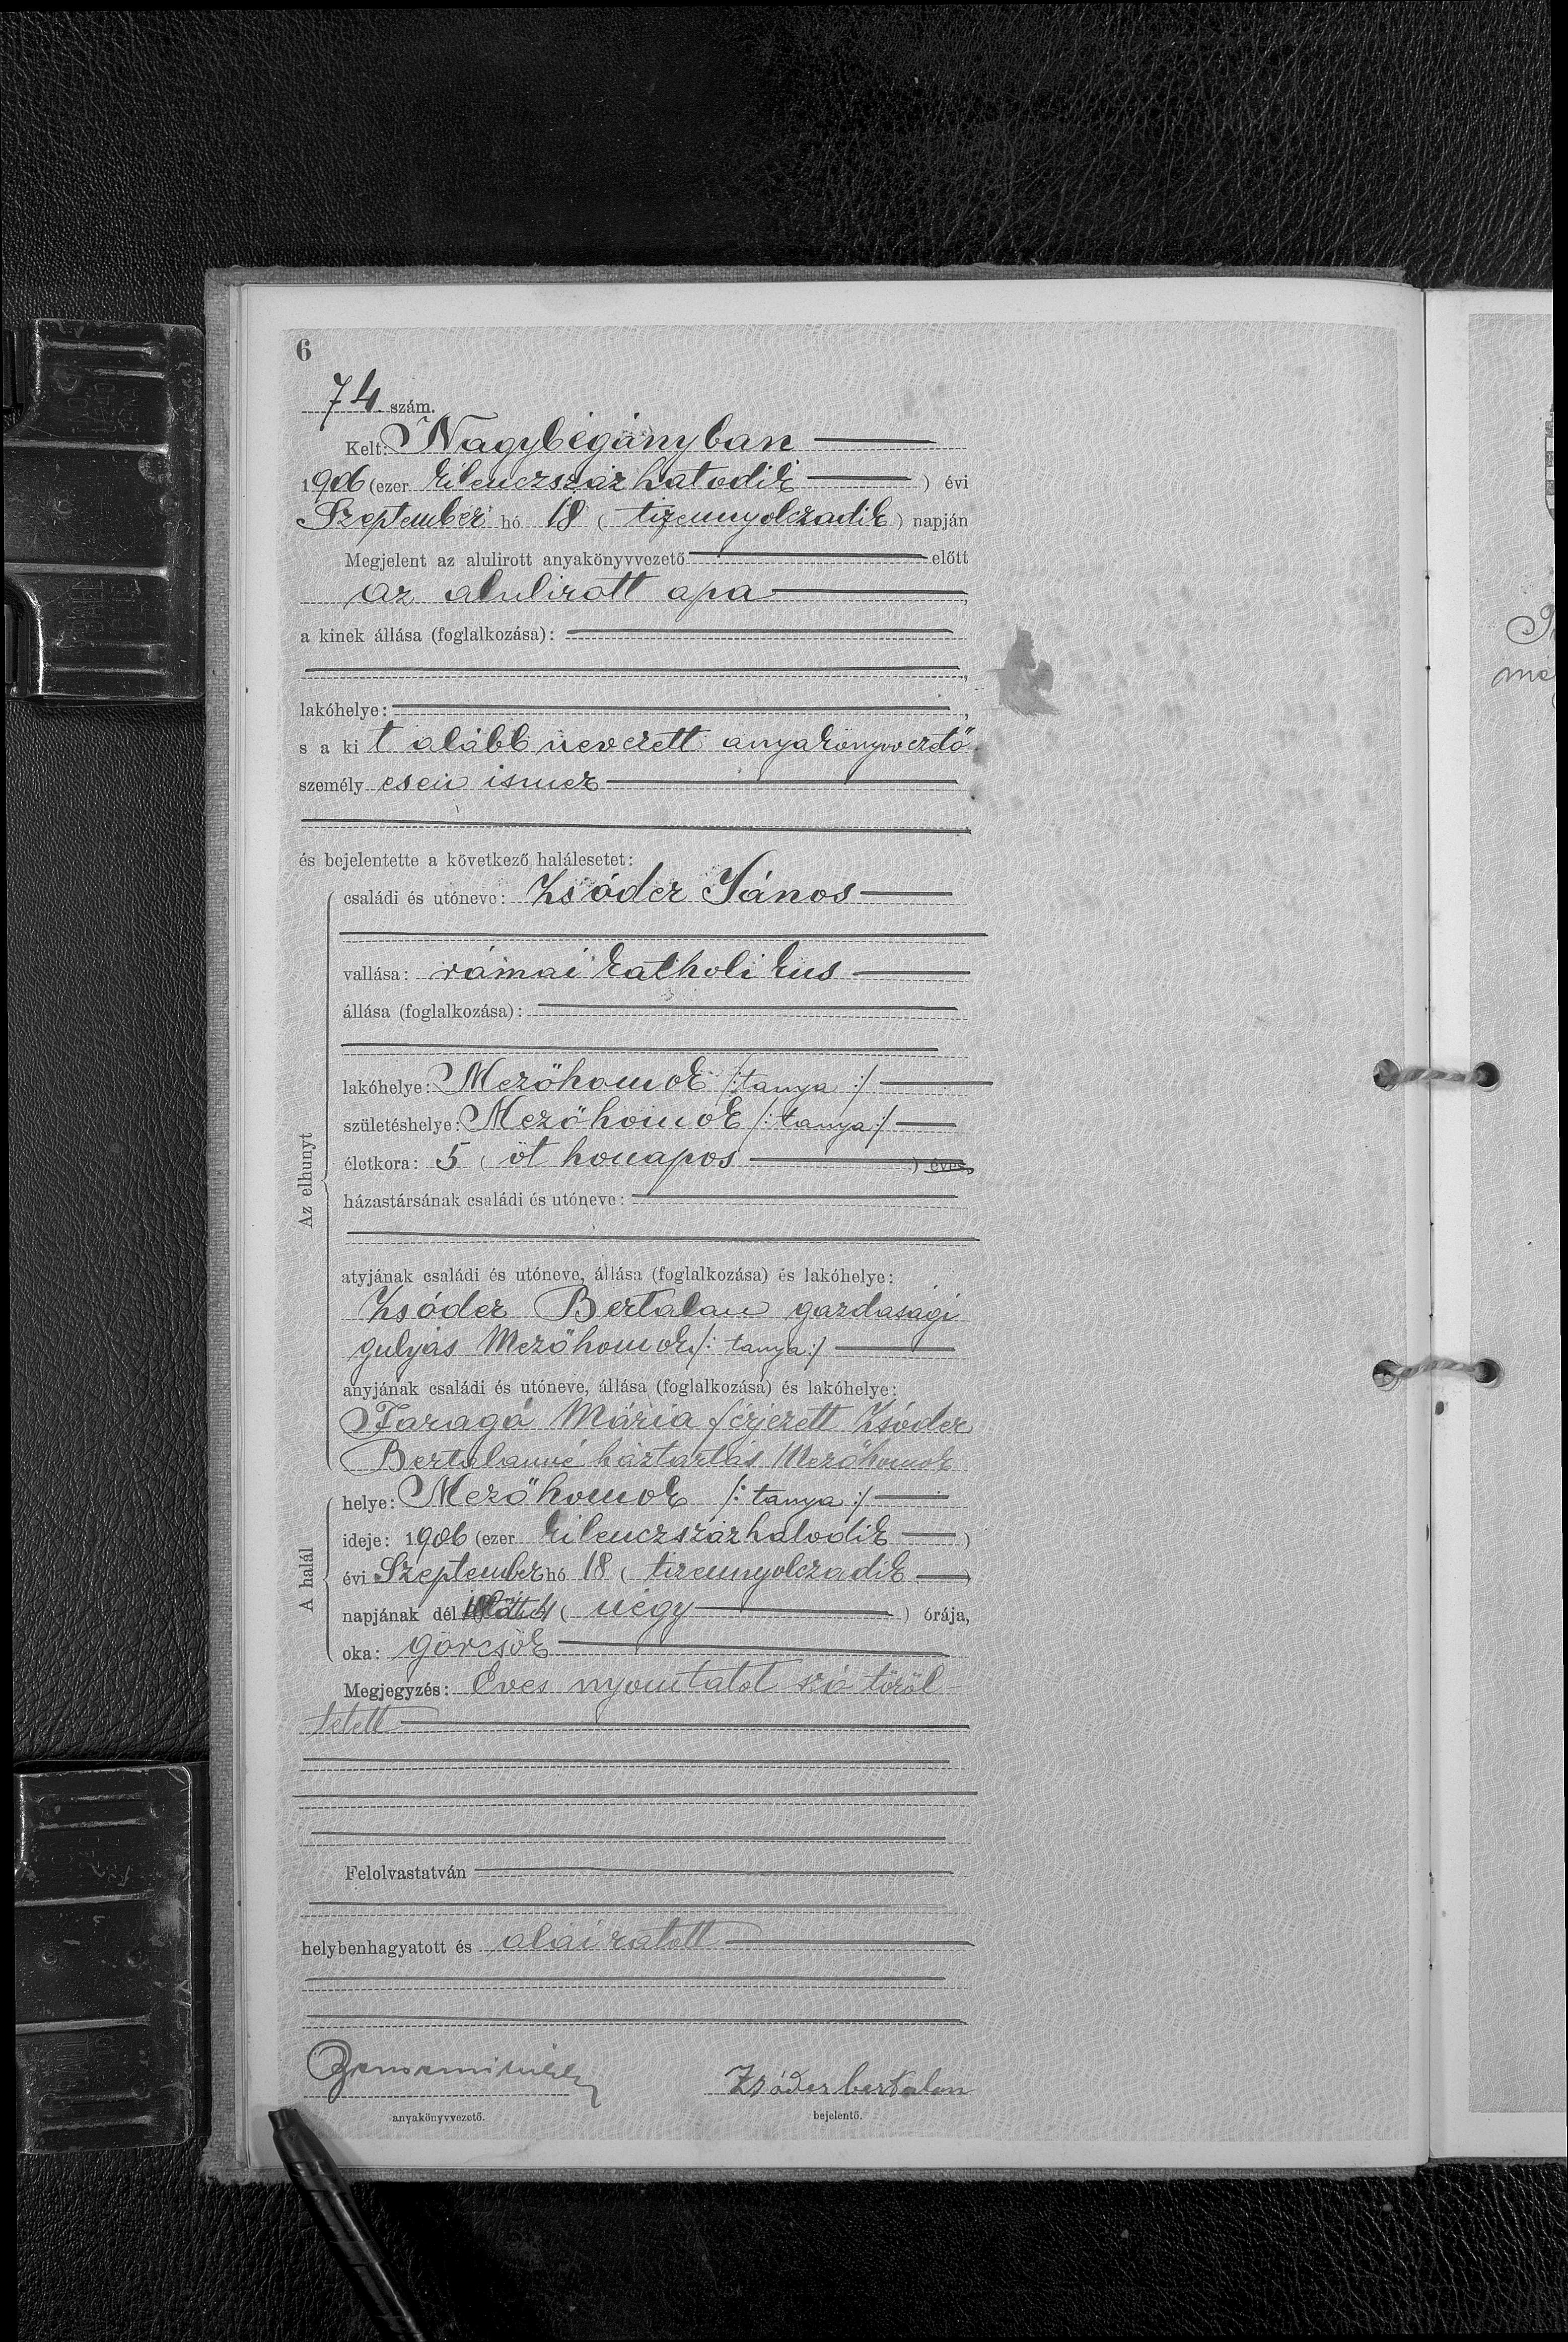 6
74 szám.
Kelt: Nagybégányban
1906 (ezer kilenczszáz hatodik) évi
Szeptember hó 18 (tizennyolczadik) napján
Megjelent az alulirott anyakönyvvezető előtt
az alulirott apa,
a kinek állása (foglalkozása):
,
lakóhelye: ,
s a kit alább nevezett anyakönyvvezető
személyesen ismer
és bejelentette a következő halálesetet:
Az elhunyt
családi és utóneve: Zsóder János
vallása: római katholikus
állása (foglalkozása):
lakóhelye: Mezőhomok /: tanya :/
születéshelye: Mezőhomok /: tanya :/
életkora: 5 (öt honapos) éves,
házastársának családi és utóneve:
atyjának családi és utóneve, állása (foglalkozása) és lakóhelye:
Zsóder Bertalan gazdasági
gulyás Mezőhomok /: tanya :/
anyjának családi és utóneve, állása (foglalkozása) és lakóhelye:
Faragó Mária férjezett Zsóder
Bertalanné háztartás Mezőhomok
A halál
helye: Mezőhomok /: tanya :/
ideje: 1906 (ezer kilenczszázhatodik)
évi Szeptember hó 18 (tizennyolczadik)
napjának dél 4 (négy) órája,
oka: görcsök
Megjegyzés: Éves nyomtatot szó töröl-
tetett
Felolvastatván
helybenhagyatott és aláiratott
anyakönyvvezető.
Zsóder bertalan
bejelentő.